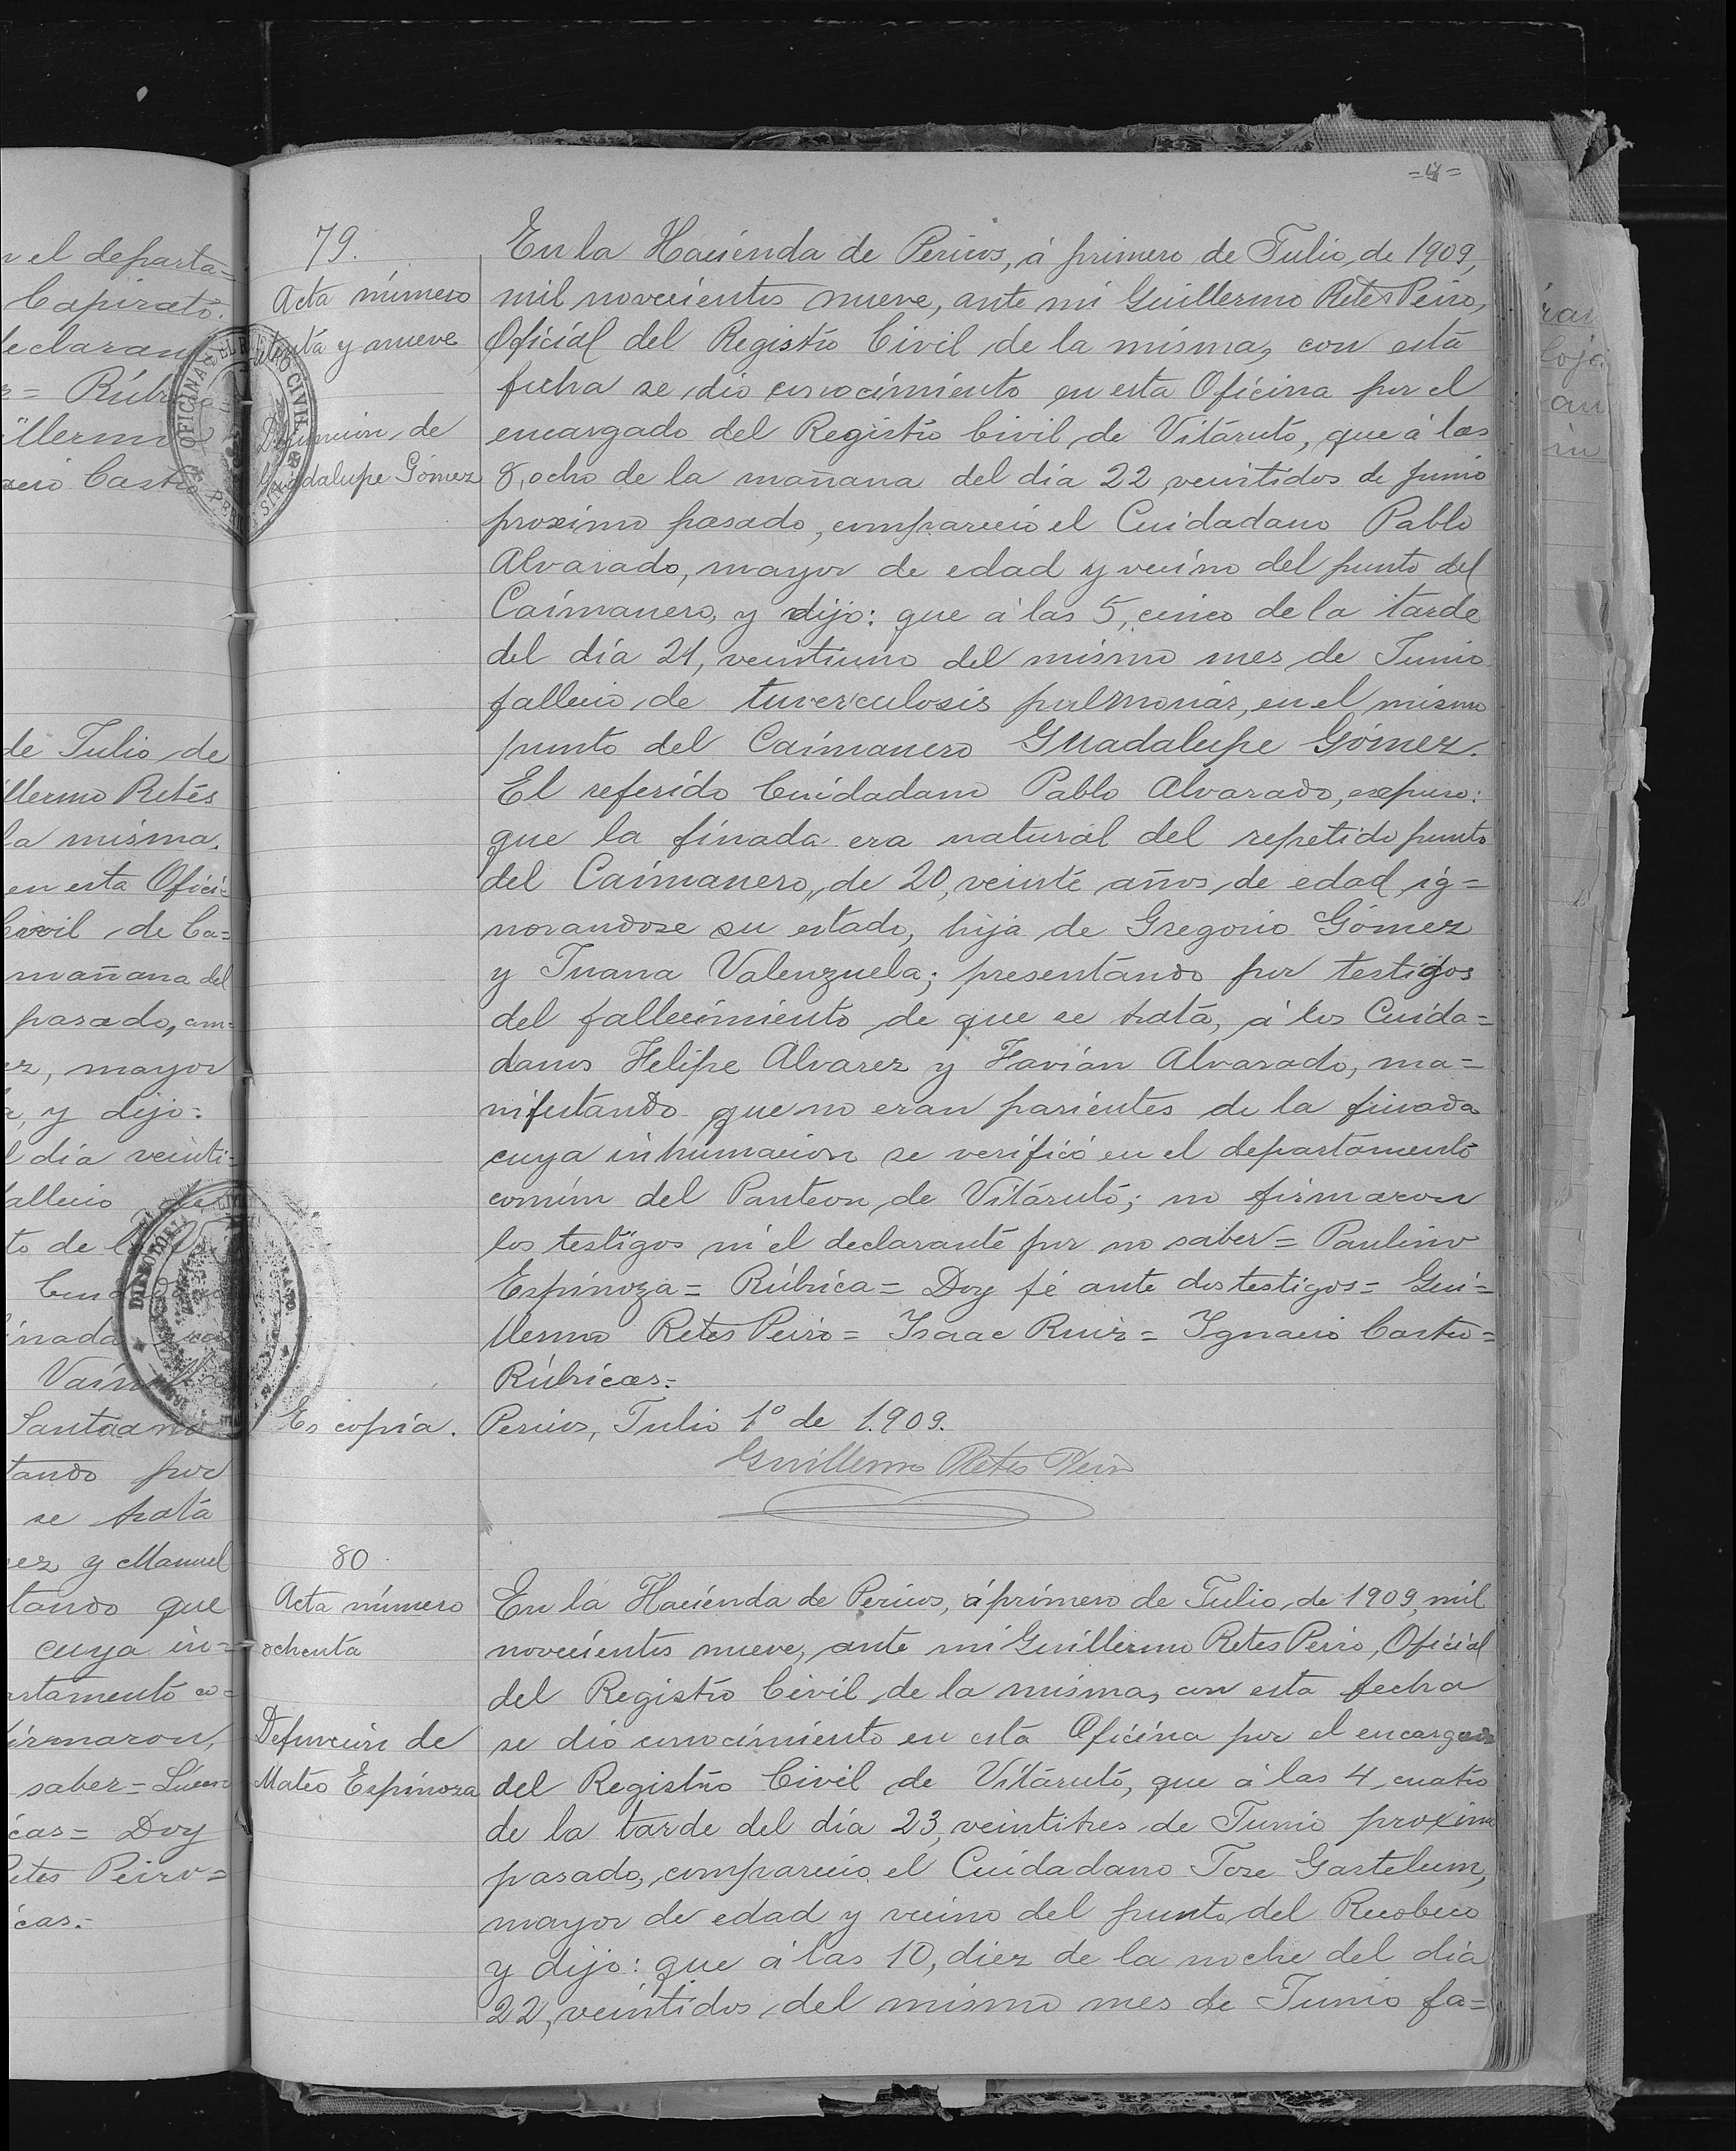 =4=
n el departa=
Capirato.
declaran
= Rúbr
illermo
acio Castro
de Julio de
illermo Retes
la misma,
en esta Ofici=
Civil de Ca=
mañana del
pasado, com=
ez, mayor
a, y dijo:
l día veinti=
falleció de
to de l
Ciudadano
inada
Santaana
tando por
se trata
ez y Manuel
tando que
cuya in=
artamento co=
firmaron,
saber=
icas= Doy
Retes Peiro=
icas.=
79.
Acta número
setenta y nueve
Defunción de
Guadalupe Gómez
OFICINA DEL REGISTRO CIVIL
En la Hacienda de Pericos, á primero de Julio de 1909,
mil novecientos nueve, ante mi Guillermo Retes Peiro,
Oficial del Registro Civil de la misma, con esta
fecha se dio conocimiento en esta Oficina por el
encargado del Registro Civil de Vitaruto, que á las
8, ocho de la mañana del día 22, veintidos de Junio
proximo pasado, compareció el Cuidadano Pablo
Alvarado, mayor de edad y vecino del punto del
Caimanero, y dijo: que á las 5, cinco de la tarde
del día 21, veintiuno del mismo mes de Junio
falleció de tuverculosis pulmonar, en el mismo
punto del Caimanero Guadalupe Gómez.
El referido Cuidadano Pablo Alvarado, expuso:
que la finada era natural del repetido punto
del Caimanero, de 20, veinte años de edad, ig=
norandose su estado, hija de Gregorio Gómez
y Juana Valenzuela; presentando por testigos
del fallecimiento de que se trata, á los Cuida=
danos Felipe Alvarez y Favián Alvarado, ma=
nifestando que no eran parientes de la finada
cuya inhumacion se verificó en el departamento
común del Panteon de Vitaruto; no firmaron
los testigos ni el declarante por no saber= Paulino
Espinoza= Rúbrica= Doy fé ante dos testigos= Gui=
llermo Retes Peiro= Isaac Ruiz= Ignacio Castro=
Rúbricas.=
Es copia. Pericos, Julio 1º de 1.909.
Guillermo Retes Peiro
80
Acta número
ochenta
Defunción de
Mateo Espinoza
En la Hacienda de Pericos, á primero de Julio de 1909, mil
novecientos nueve, ante mi Guillermo Retes Peiro, Oficial
del Registro Civil de la misma, con esta fecha
se dió conocimiento en esta Oficina por el encargado
del Registro Civil de Vitaruto, que á las 4, cuatro
de la tarde del día 23, veintitres de Junio proximo
pasado, compareció el Cuidadano Jose Gastelum,
mayor de edad y vecino del punto del Recobeco
y dijo: que á las 10, diez de la noche del día
22, veintidos del mismo mes de Junio fa=